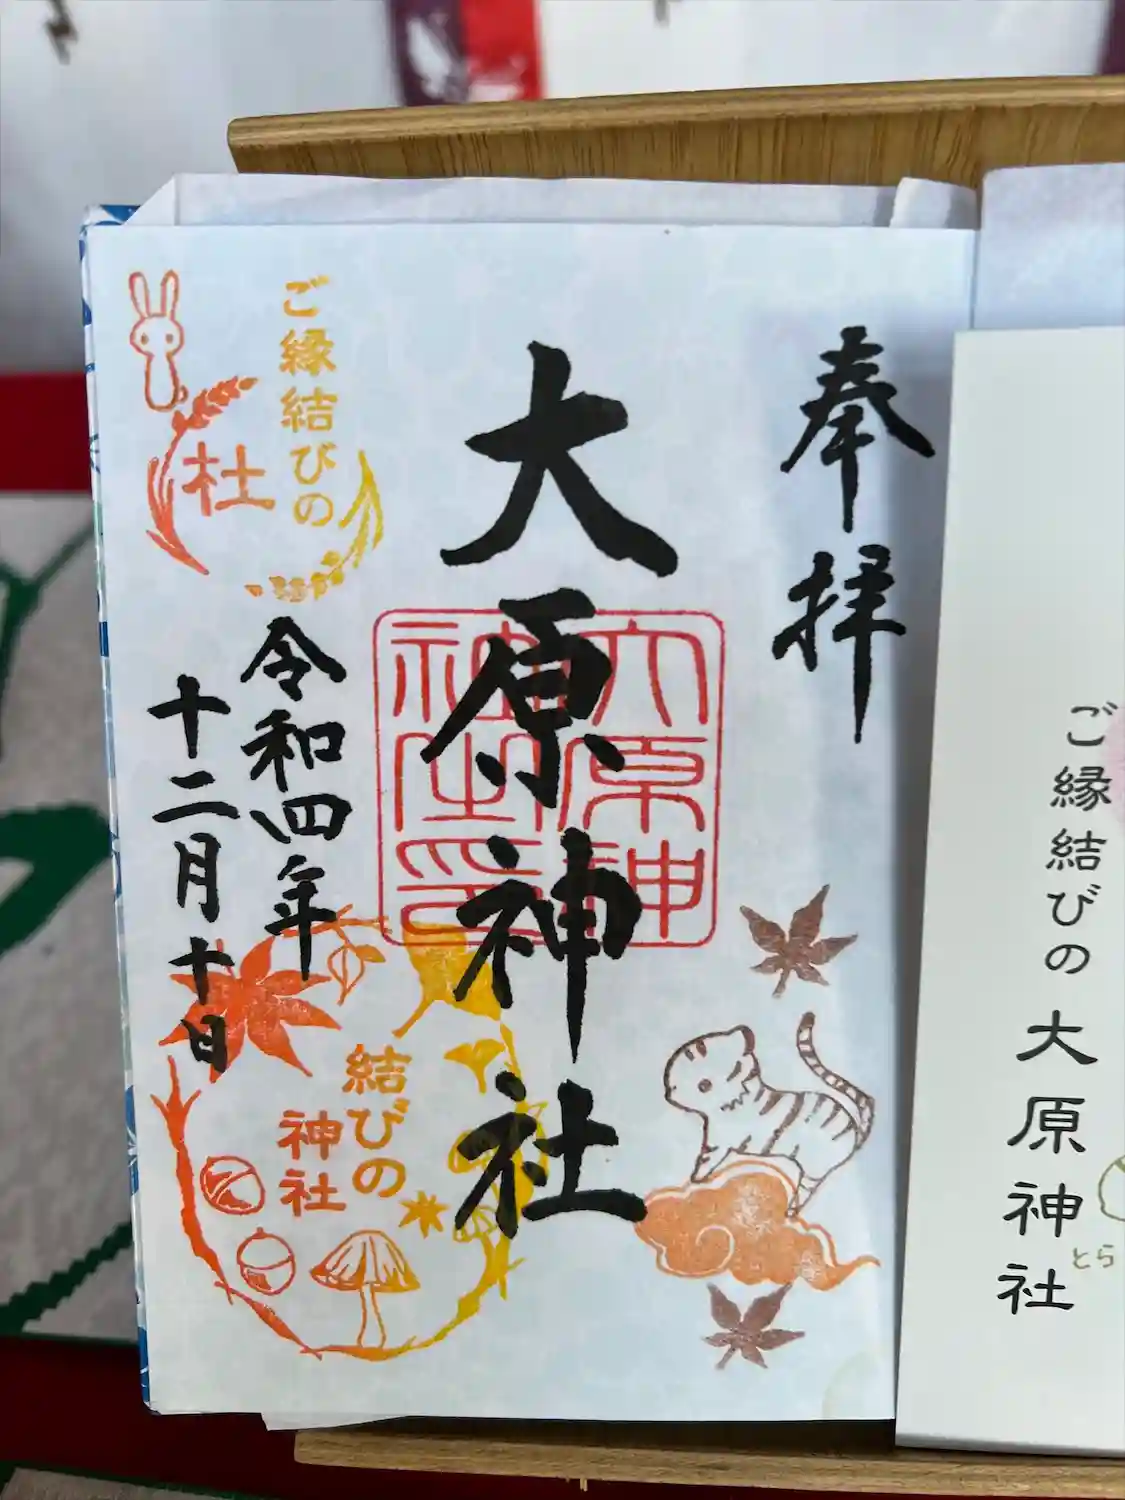 奉拝
大原神社
大原神
社印
令和四年
十二月十日
ご縁結びの
杜
結びの
神社
ご縁結びの 大原神社
とら